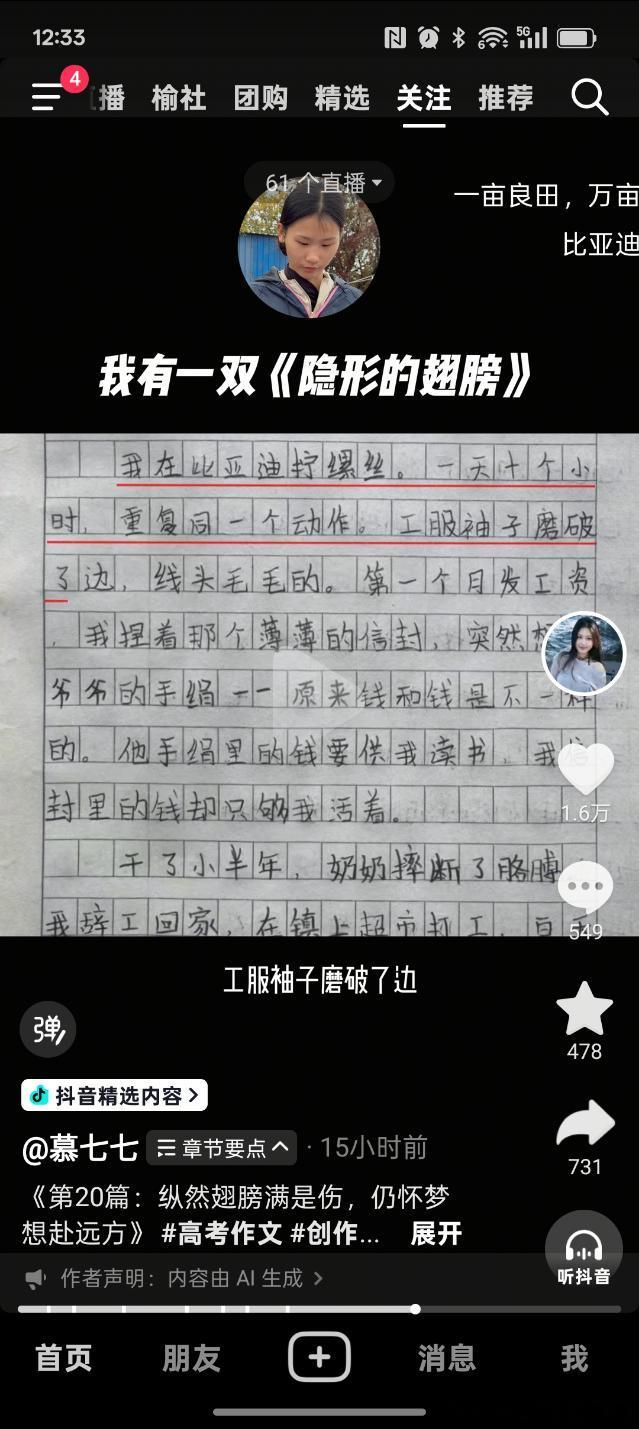 12:33
5G
4
播 榆社 团购 精选 关注 推荐
61个直播
一亩良田，万亩
比亚迪
我有一双《隐形的翅膀》
我在比亚油拧螺丝。一天十个小
时，重复同一个动作。工服袖子磨破
了边，线头毛毛的。第一个月发工资
，我捏着那个薄薄的信封，突然
爷爷的手绢——原来钱和钱是不一样
的。他手绢里的钱要供我读书，我信
封里的钱却只够我活着。
干了小半年，奶奶摔断了胳膊
我辞工回家，在镇上超市打工，白天
1.6万
549
工服袖子磨破了边
弹
478
抖音精选内容
@慕七七 章节要点 · 15小时前
731
《第20篇：纵然翅膀满是伤，仍怀梦
想赴远方》 #高考作文 #创作... 展开
听抖音
作者声明：内容由 AI 生成
首页 朋友 消息 我